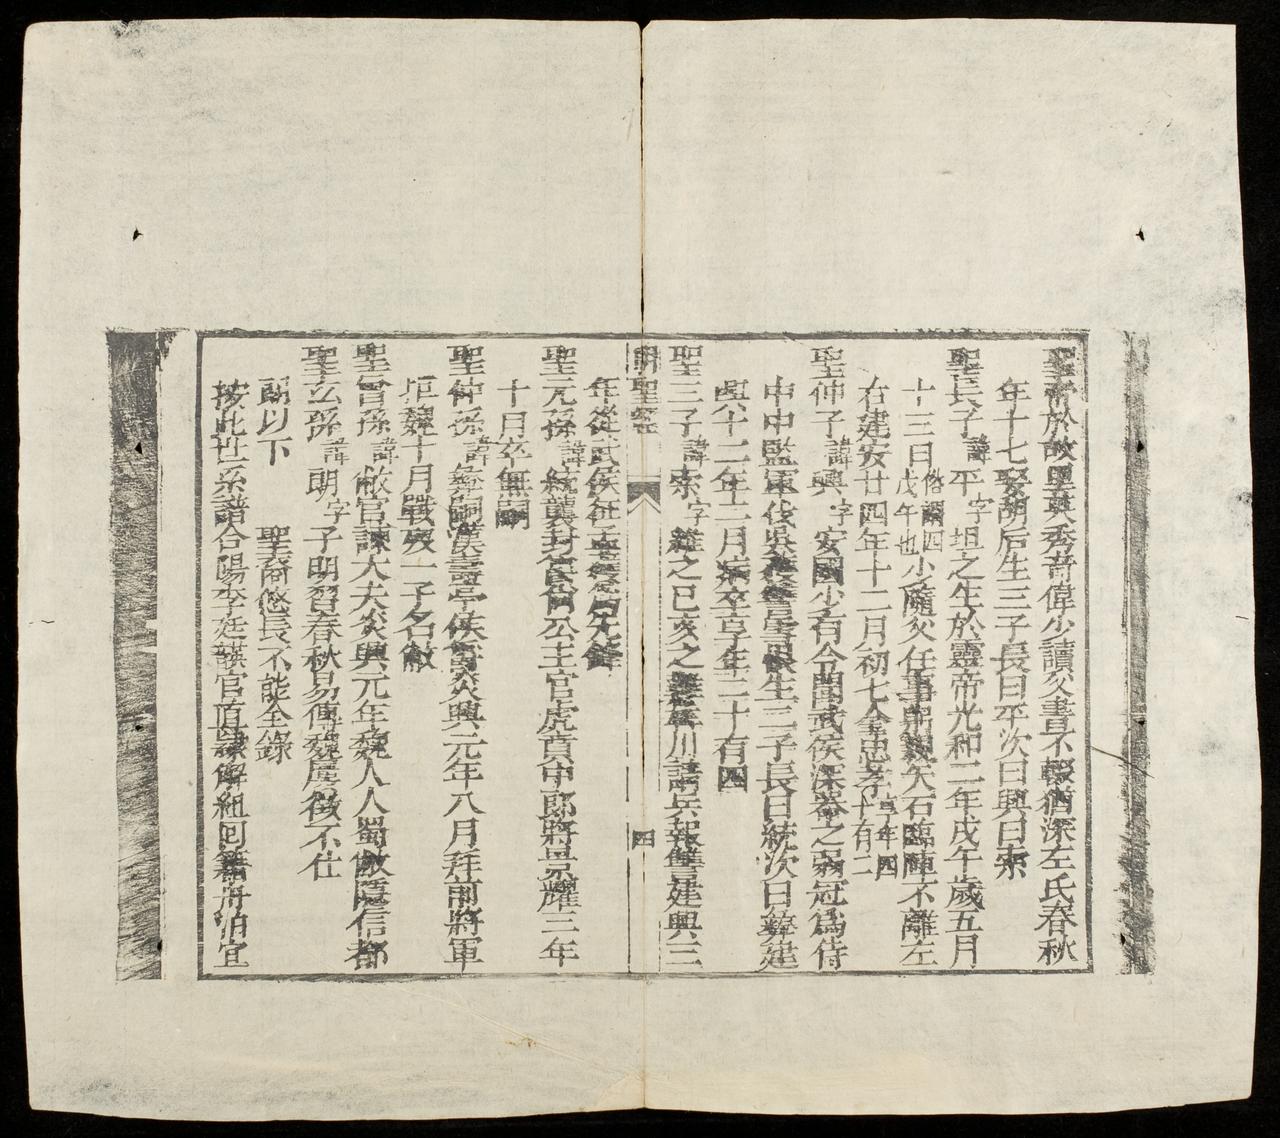 聖帝於故里英秀奇偉少讀父書不輟猶深左氏春秋
年十七娶胡后生三子長曰平次曰興曰索
聖長子諱平字坦之生於靈帝光和二年戊午歲五月
十三日俗謂四戊午也少隨父任事躬親矢石臨陣不離左
右建安廿四年十二月初七全忠孝享年四十有二
聖仲子諱興字安國少有令聞武侯深器之弱冠爲侍
中中監軍伐吳生三子長曰統次曰彝建
興十二年二月病卒享年三十有四
聖三子諱索字維之己亥之川請兵報讐建興三
明聖經 四
年從武侯征
聖元孫諱統襲封官尚公主官虎賁中郎將景耀三年
十月卒無嗣
聖仲孫諱彝嗣漢壽亭侯爵炎興元年八月拜前將軍
拒魏十月戰歿一子名敝
聖曾孫諱敝官諫大夫炎興元年魏人入蜀敝隱信都
聖玄孫諱朗字子明習春秋易傳魏屢徵不仕
朗以下 聖裔悠長不能全錄
按此世系譜合陽李廷謨官直隸解組回籍舟泊宜